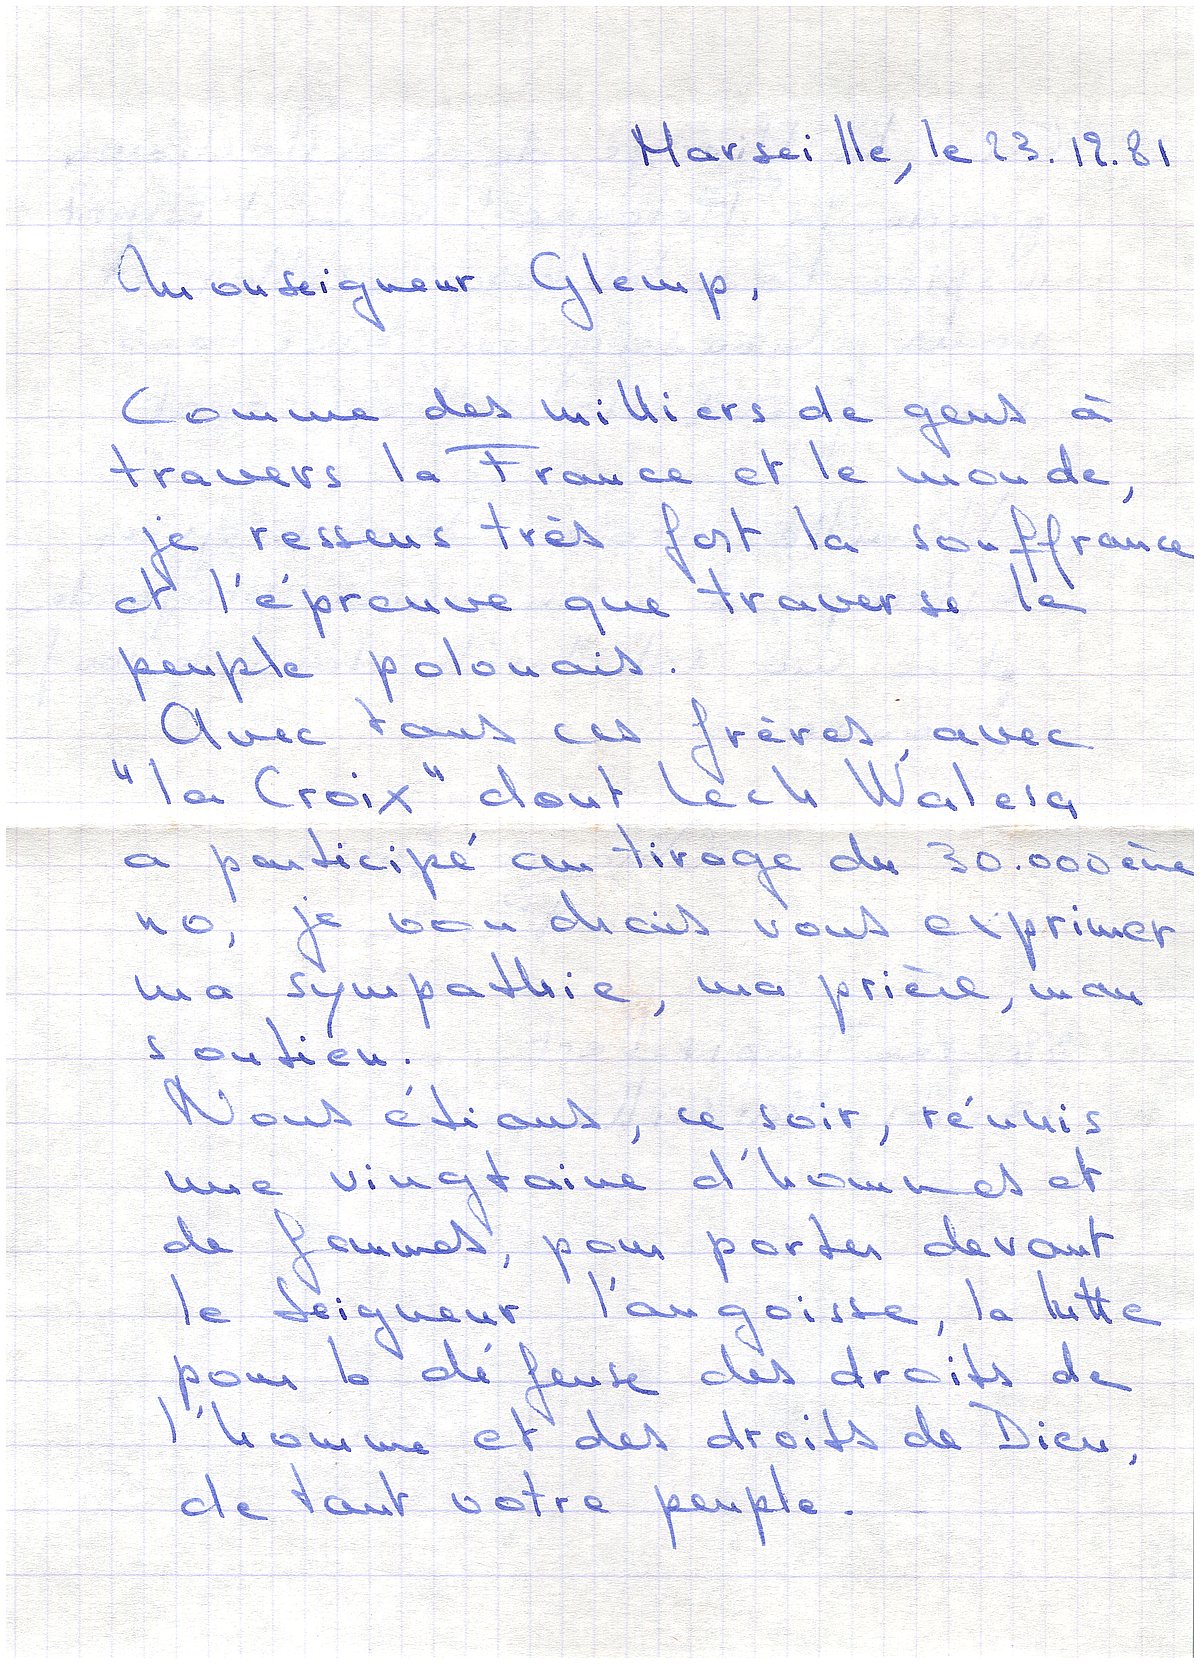 Marseille, le 23.12.81
Monseigneur Glemp,
Comme des milliers de gens à
travers la France et le monde,
je ressens très fort la souffrance
et l'épreuve que traverse le
peuple polonais.
Avec tous ces frères, avec
"la Croix" dont Lech Walesa
a participé au tirage du 30.000ème
no, je voudrais vous exprimer
ma sympathie, ma prière, mon
soutien.
Nous étions, ce soir, réunis
une vingtaine d'hommes et
de femmes, pour porter devant
le Seigneur l'angoisse, la lutte
pour la défense des droits de
l'homme et des droits de Dieu,
de tout votre peuple.